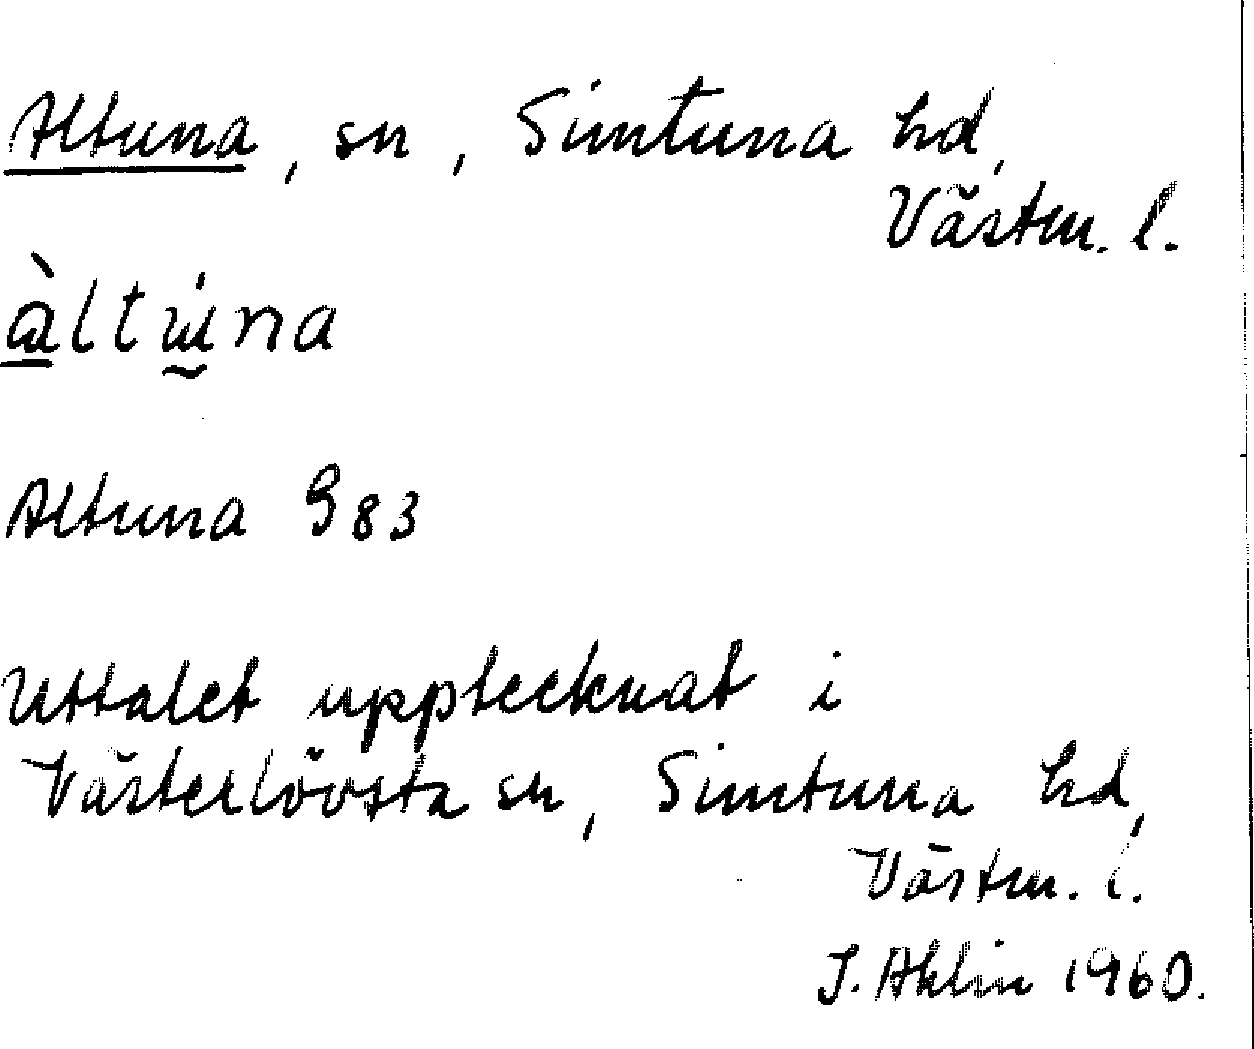 Altuna, sn, Simtuna hd,
Västm. l.
àltu̇na
Altuna G 83
Uttalet upptecknat i
Västerlövsta sn, Simtuna hd,
Västm. l.
J. Ahlin 1960.